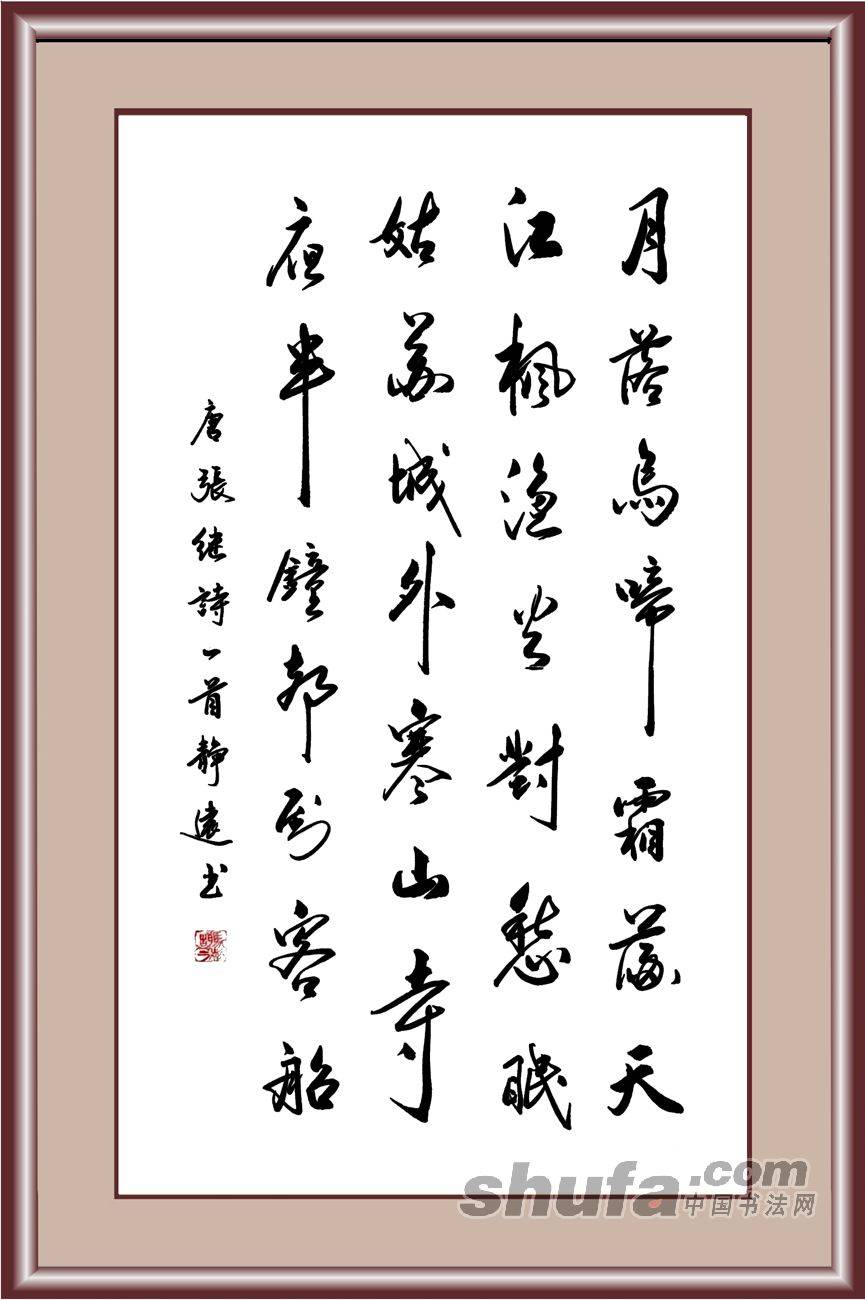 月落烏啼霜滿天
江楓漁火對愁眠
姑蘇城外寒山寺
夜半鐘聲到客船
唐張继詩一首靜遠书
shufa.com
中国书法网